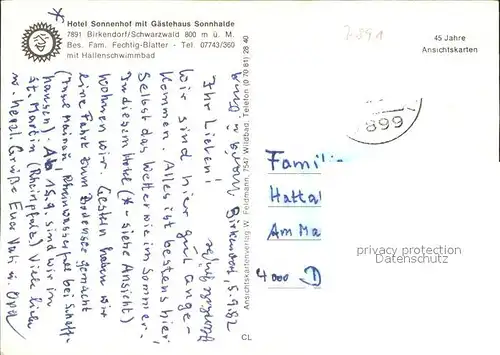 Hotel Sonnenhof mit Gästehaus Sonnhalde
7891 Birkendorf/Schwarzwald 800 m ü. M.
Bes. Fam. Fechtig-Blatter - Tel. 07743/360
mit Hallenschwimmbad
7891
45 Jahre
Ansichtskarten
899
Birkendorf, 5.9.82
Ihr Lieben!
Wir sind hier gut ange-
kommen. Alles ist bestens hier.
Selbst das Wetter wie im Sommer.
In diesem Hotel (* - siehe Ansicht)
wohnen wir. Gestern haben wir
eine Fahrt zum Bodensee gemacht
(Insel Mainau, Rheinwasserfall bei Schaff-
hausen). Ab 15.9. sind wir in
St. Martin (Rheinpfalz) Viele liebe
u. herzl. Grüße Euer Vati u. Opa
Ansichtskartenverlag W. Feldmann, 7547 Wildbad, Telefon (0 70 81) 28 40
CL
Famili
Hattal
Am Ma
4000 D
privacy protection
Datenschutz